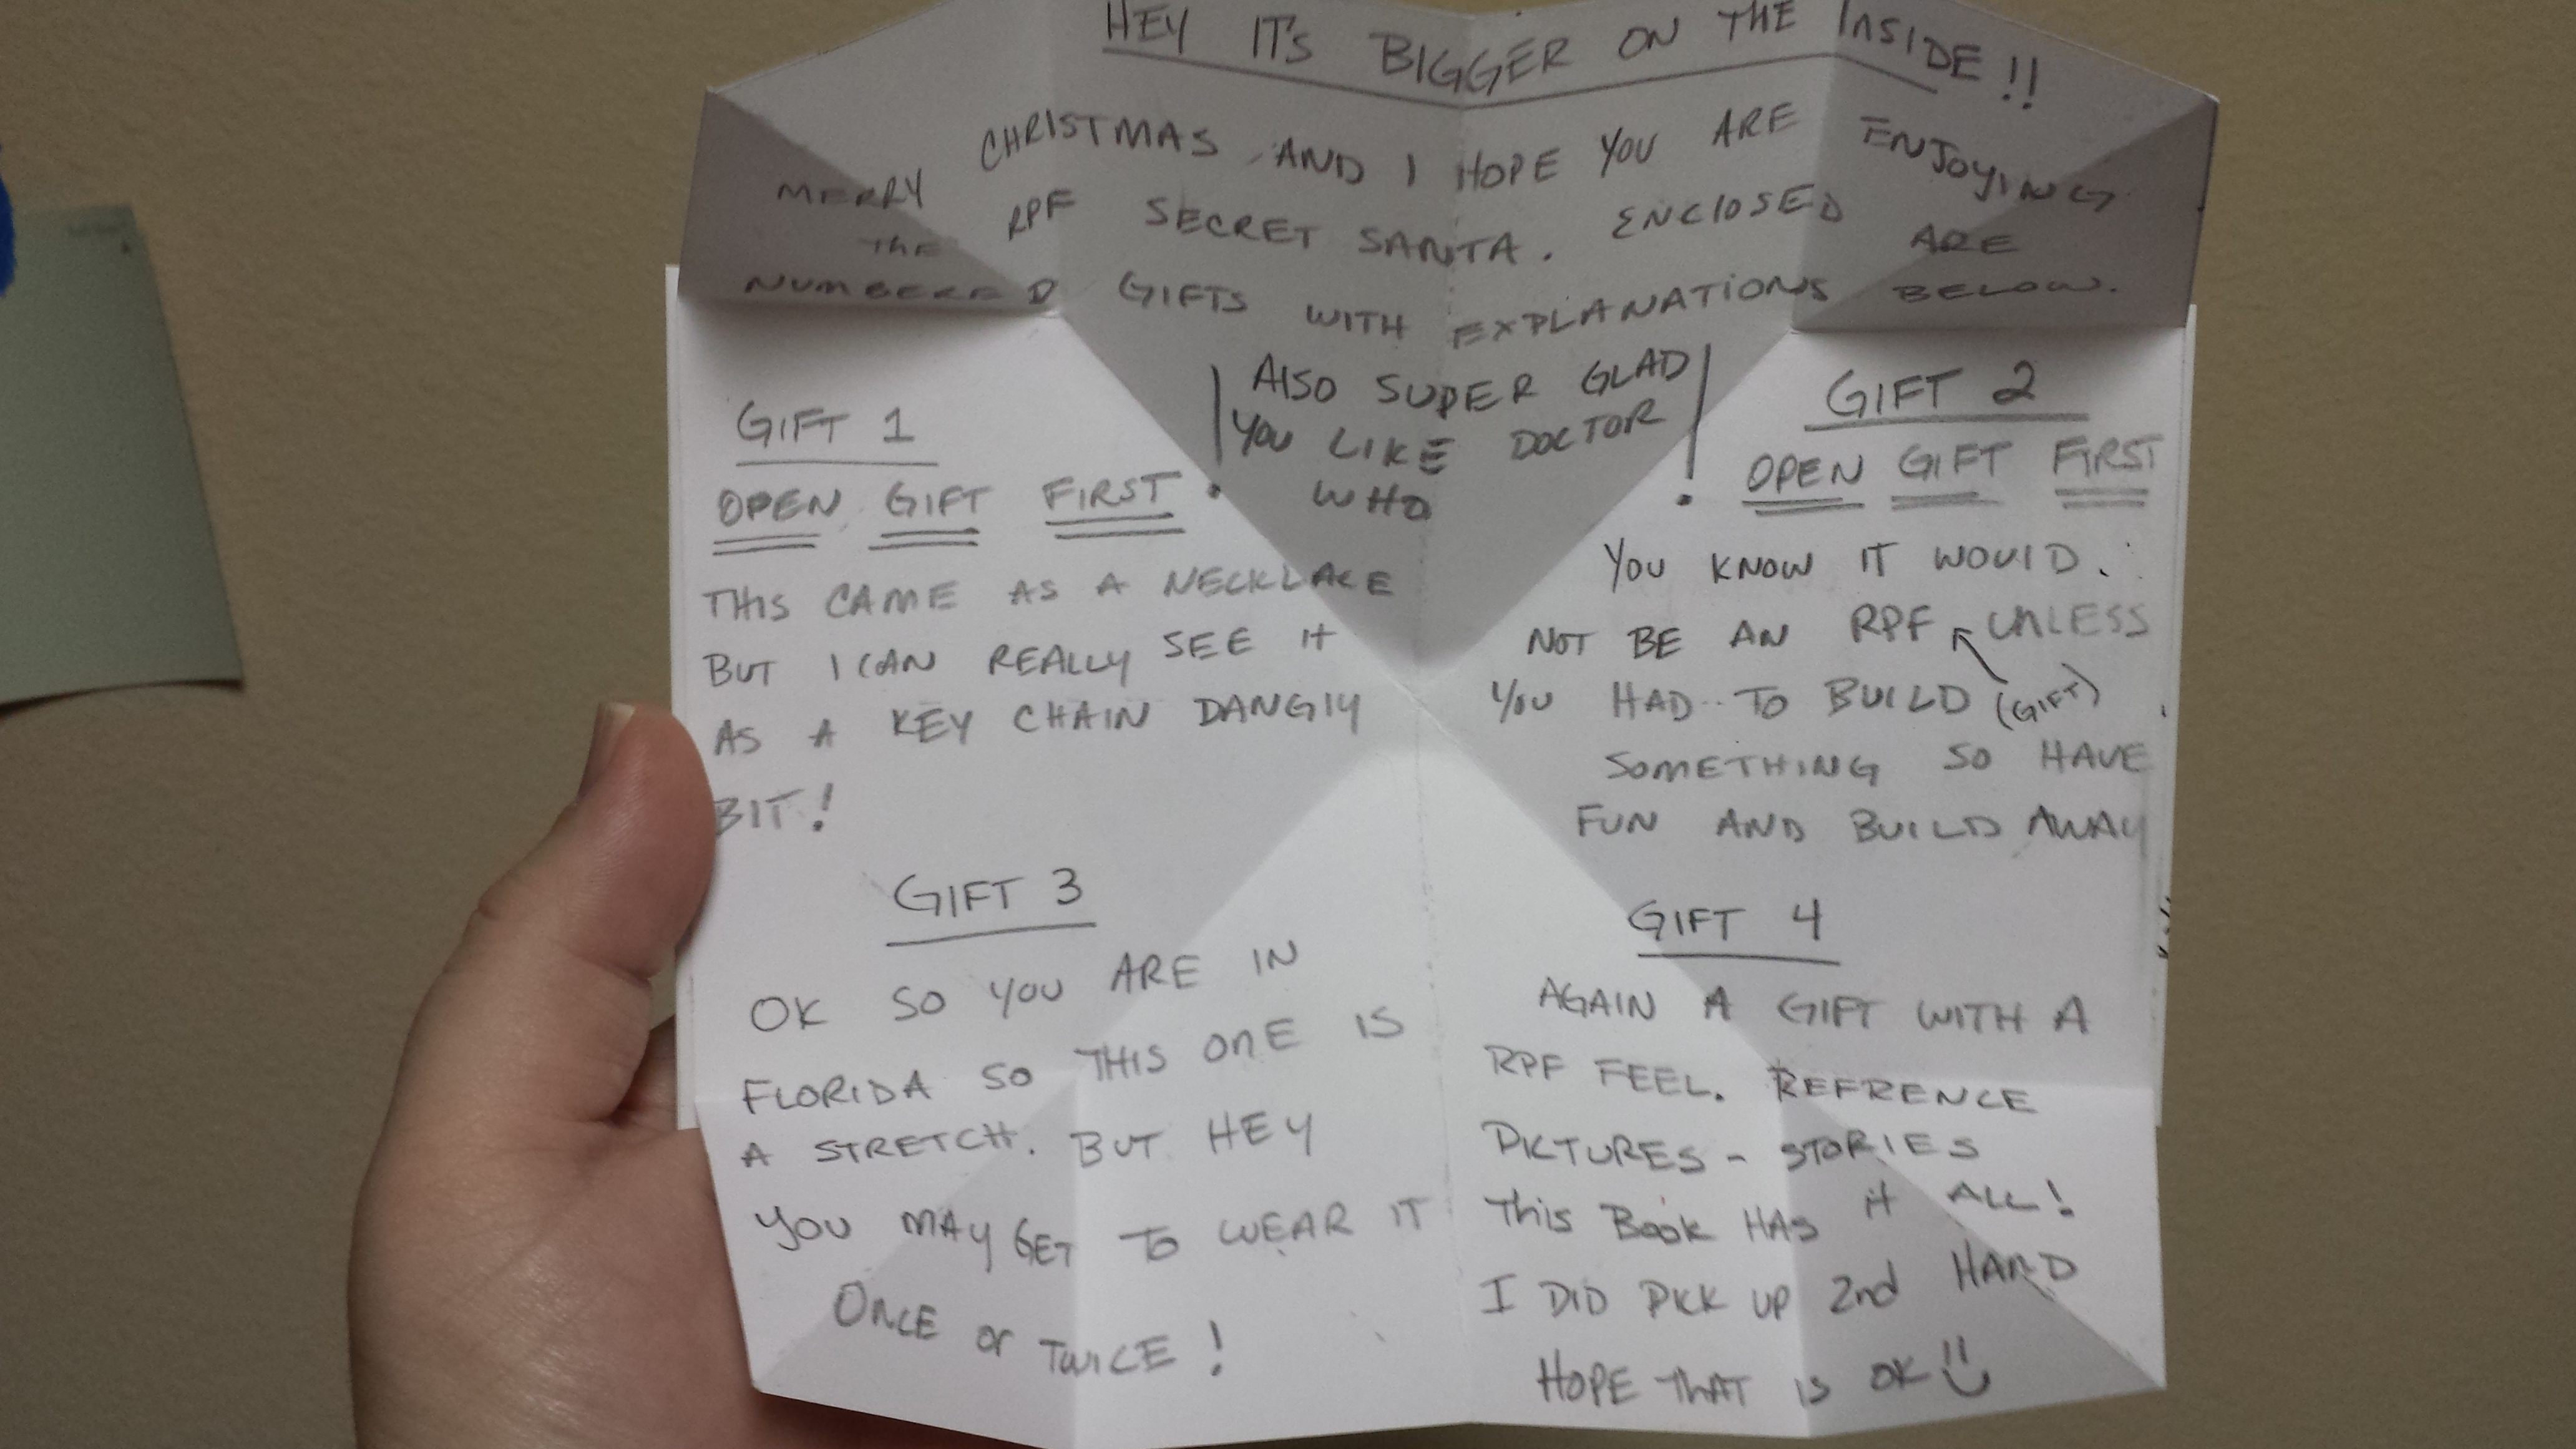 HEY IT'S BIGGER ON THE INSIDE!!
MERRY CHRISTMAS AND I HOPE YOU ARE ENJOYING
THE RPF SECRET SANTA. ENCLOSED ARE
NUMBERED GIFTS WITH EXPLANATIONS BELOW.
! ALSO SUPER GLAD !
YOU LIKE DOCTOR
WHO
GIFT 1
OPEN GIFT FIRST
THIS CAME AS A NECKLACE
BUT I CAN REALLY SEE IT
AS A KEY CHAIN DANGLY
BIT!
GIFT 2
OPEN GIFT FIRST
YOU KNOW IT WOULD
NOT BE AN RPF (GIFT) UNLESS
YOU HAD TO BUILD
SOMETHING SO HAVE
FUN AND BUILD AWAY
GIFT 3
OK SO YOU ARE IN
FLORIDA SO THIS ONE IS
A STRETCH. BUT HEY
YOU MAY GET TO WEAR IT
ONCE OR TWICE!
GIFT 4
AGAIN A GIFT WITH A
RPF FEEL. REFRENCE
PICTURES - STORIES
THIS BOOK HAS IT ALL!
I DID PICK UP 2nd HAND
HOPE THAT IS OK